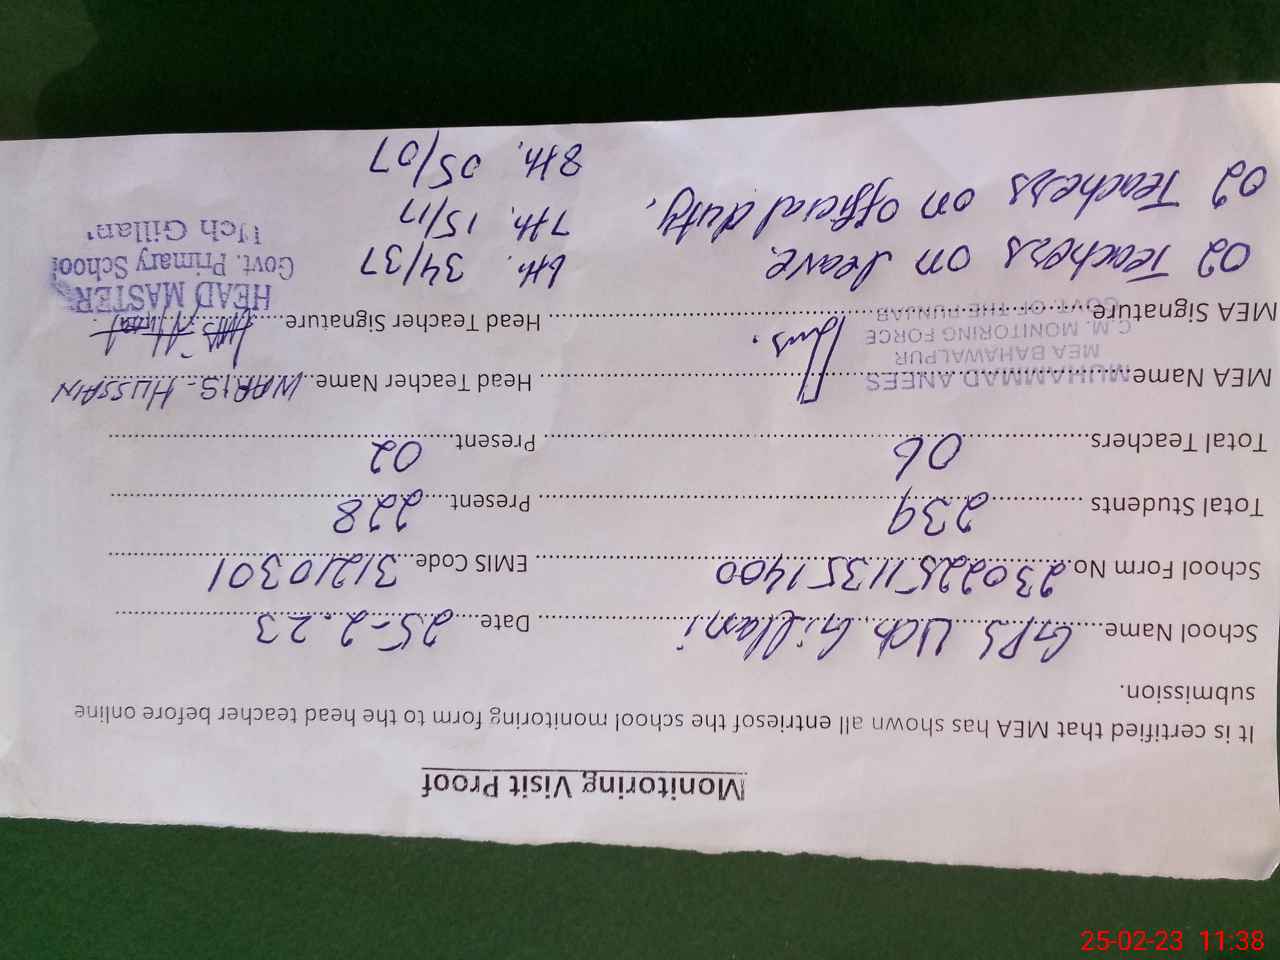 Monitoring Visit Proof
It is certified that MEA has shown all entriesof the school monitoring form to the head teacher before online
submission.
School Name GPS Uch Gillani Date 25-2.23
School Form No. 23022511351400 EMIS Code 31210301
Total Students 239 Present 228
Total Teachers 06 Present 02
MEA Name Head Teacher Name WARIS-HUSSAIN
MUHAMMAD ANEES
MEA BAHAWALPUR
C.M. MONITORING FORCE
GOVT. OF THE PUNJAB
MEA Signature Head Teacher Signature
HEAD MASTER
Govt. Primary School
Uch Gillani
02 Teachers on leave. 6th. 34/37
02 Teachers on official duty. 7th. 15/17
8th. 05/07
25-02-23 11:38